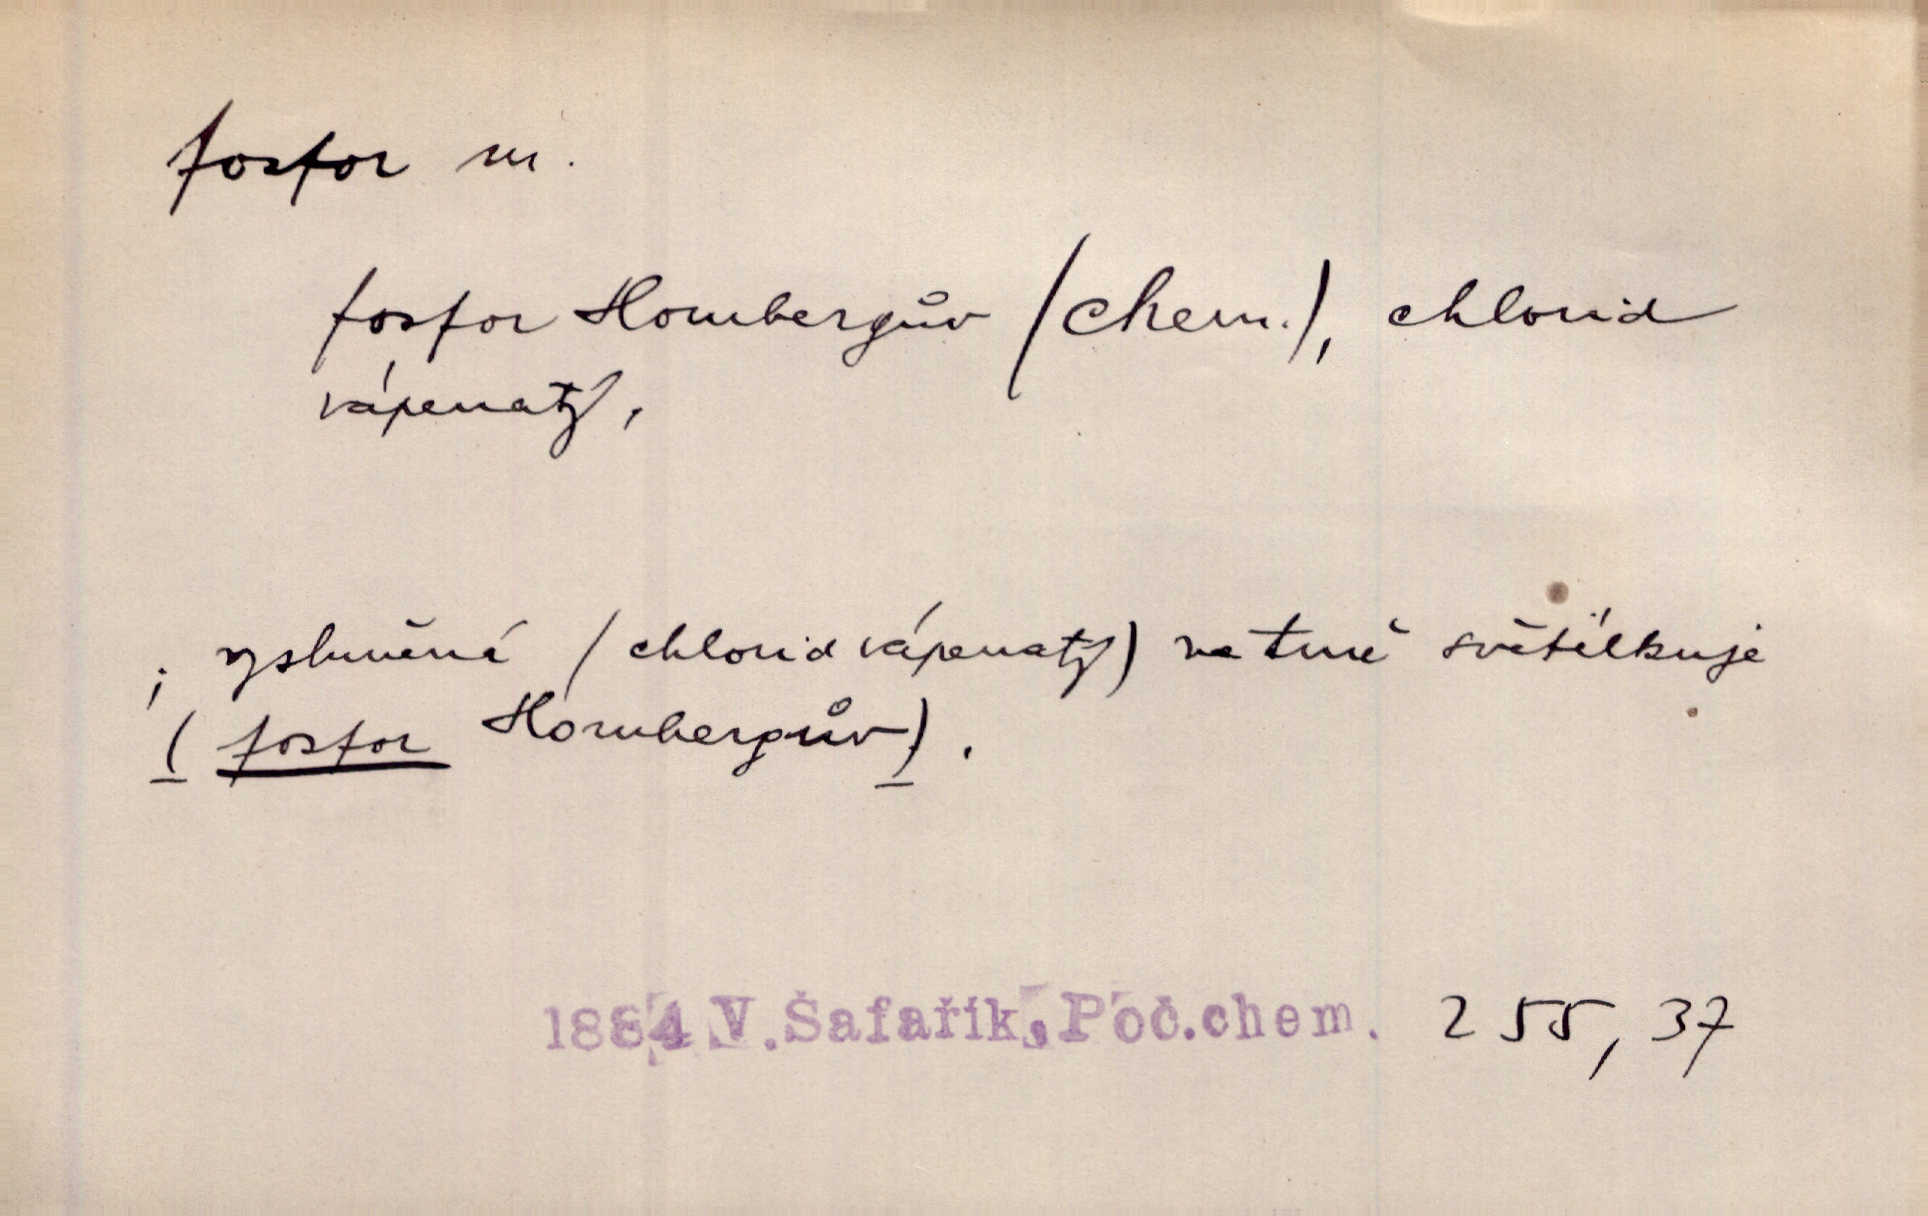 fosfor m.
fosfor Hombergův (chem.), chlorid
vápenatý,
; vysluněná (chlorid vápenatý) ve tmě světélkuje
(fosfor Hombergův).
1884 V. Šafařík, Poč.chem. 255, 37